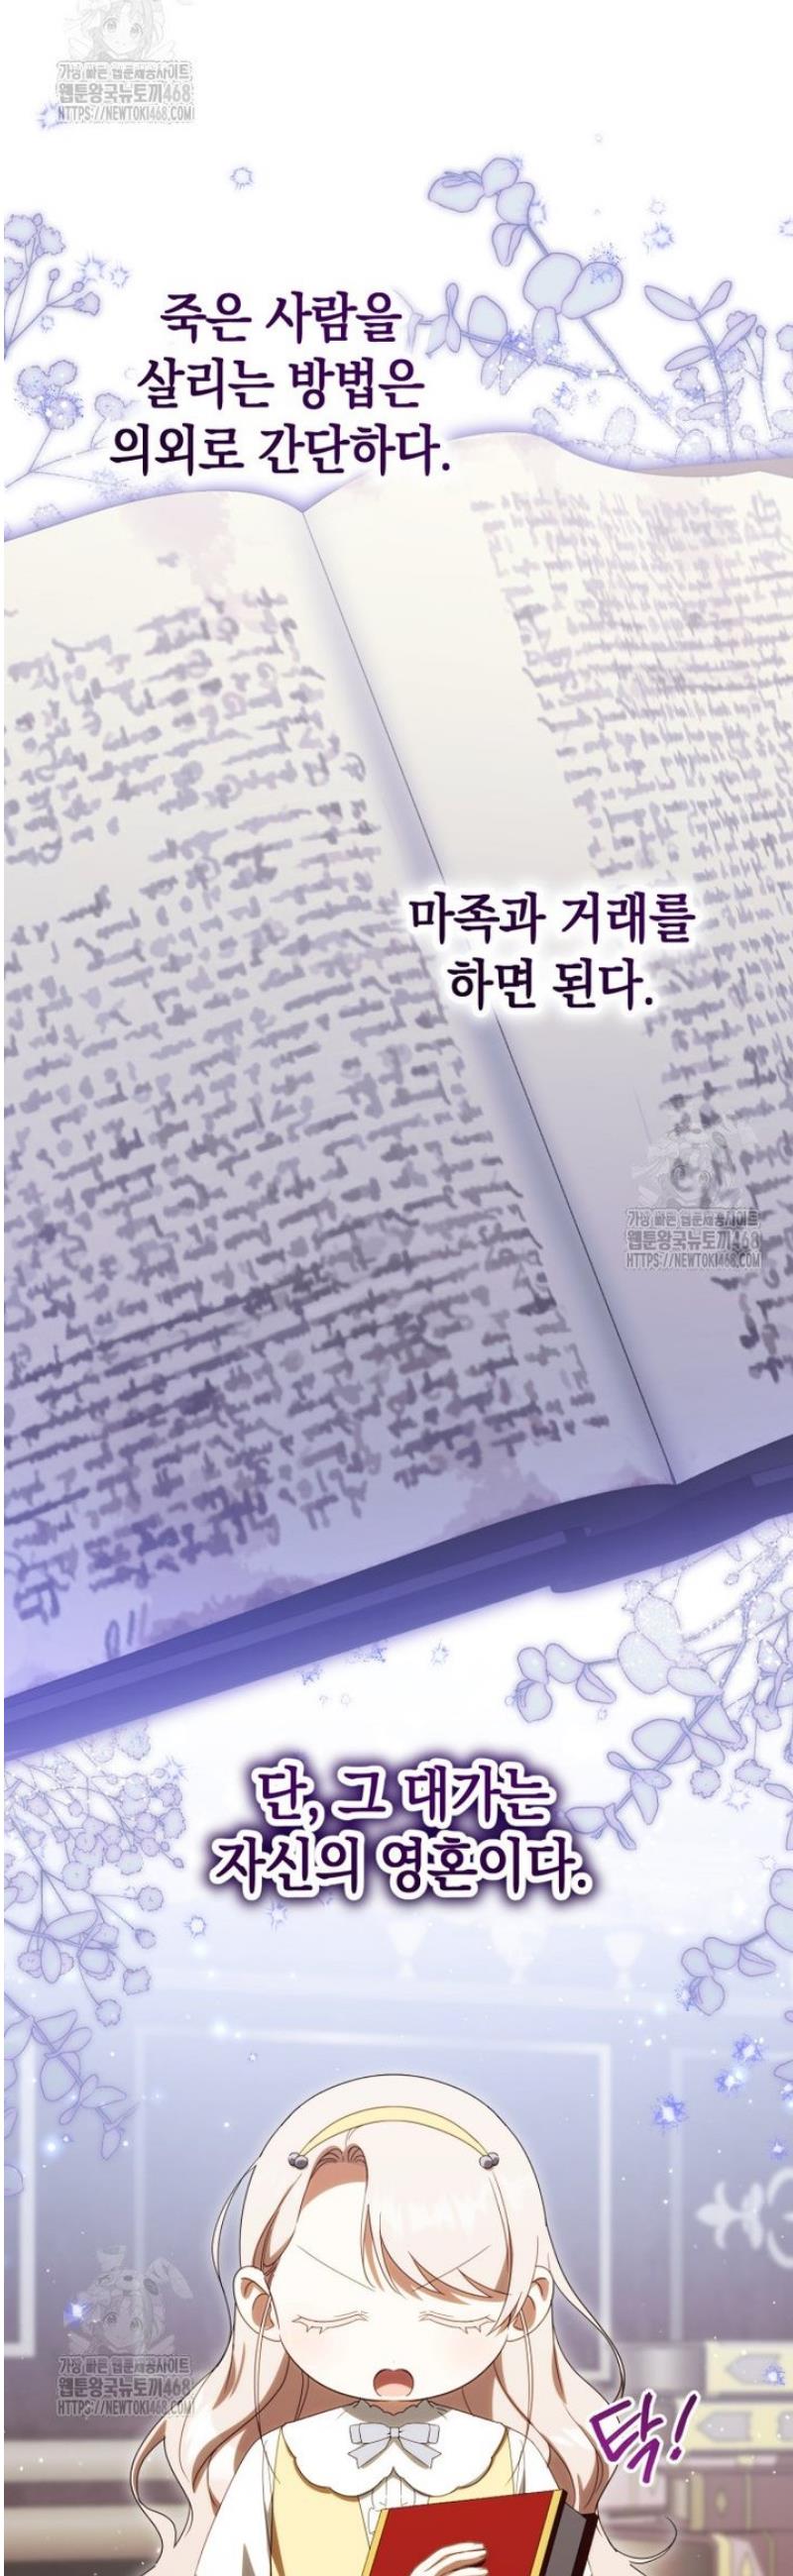 가장 빠른 웹툰제공사이트
웹툰왕국뉴토끼468
HTTPS://NEWTOKI468.COM
죽은 사람을
살리는 방법은
의외로 간단하다.
마족과 거래를
하면 된다.
가장 빠른 웹툰제공사이트
웹툰왕국뉴토끼468
HTTPS://NEWTOKI468.COM
단, 그 대가는
자신의 영혼이다.
가장 빠른 웹툰제공사이트
웹툰왕국뉴토끼468
HTTPS://NEWTOKI468.COM
탁!